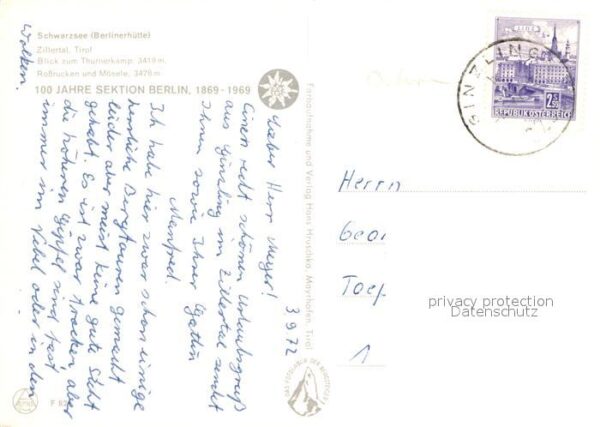 Schwarzsee (Berlinerhütte)
Zillertal, Tirol
Blick zum Thurnerkamp, 3419 m.
Roßrucken und Mösele, 3478 m.
100 JAHRE SEKTION BERLIN, 1869-1969
3 9 72
Lieber Herr Meyer!
Einen recht schönen Urlaubsgruß
aus Ginzling im Zillertal sendet
Ihnen sowie Ihrer Gattin
Manfred.
Ich habe hier zwar schon einige
herrliche Bergtouren gemacht
leider aber meist keine gute Sicht
gehabt. Es ist zwar trocken, aber
die höheren Gipfel sind fast
immer im Nebel oder in den
Wolken.
Farbaufnahme und Verlag Hans Hruschka, Mayrhofen, Tirol
DAS EDELWEISS DER BERGSTEIGER
LINZ
2.50
REPUBLIK ÖSTERREICH
GINZLING
Herrn
Geor
Toep
1
privacy protection
Datenschutz